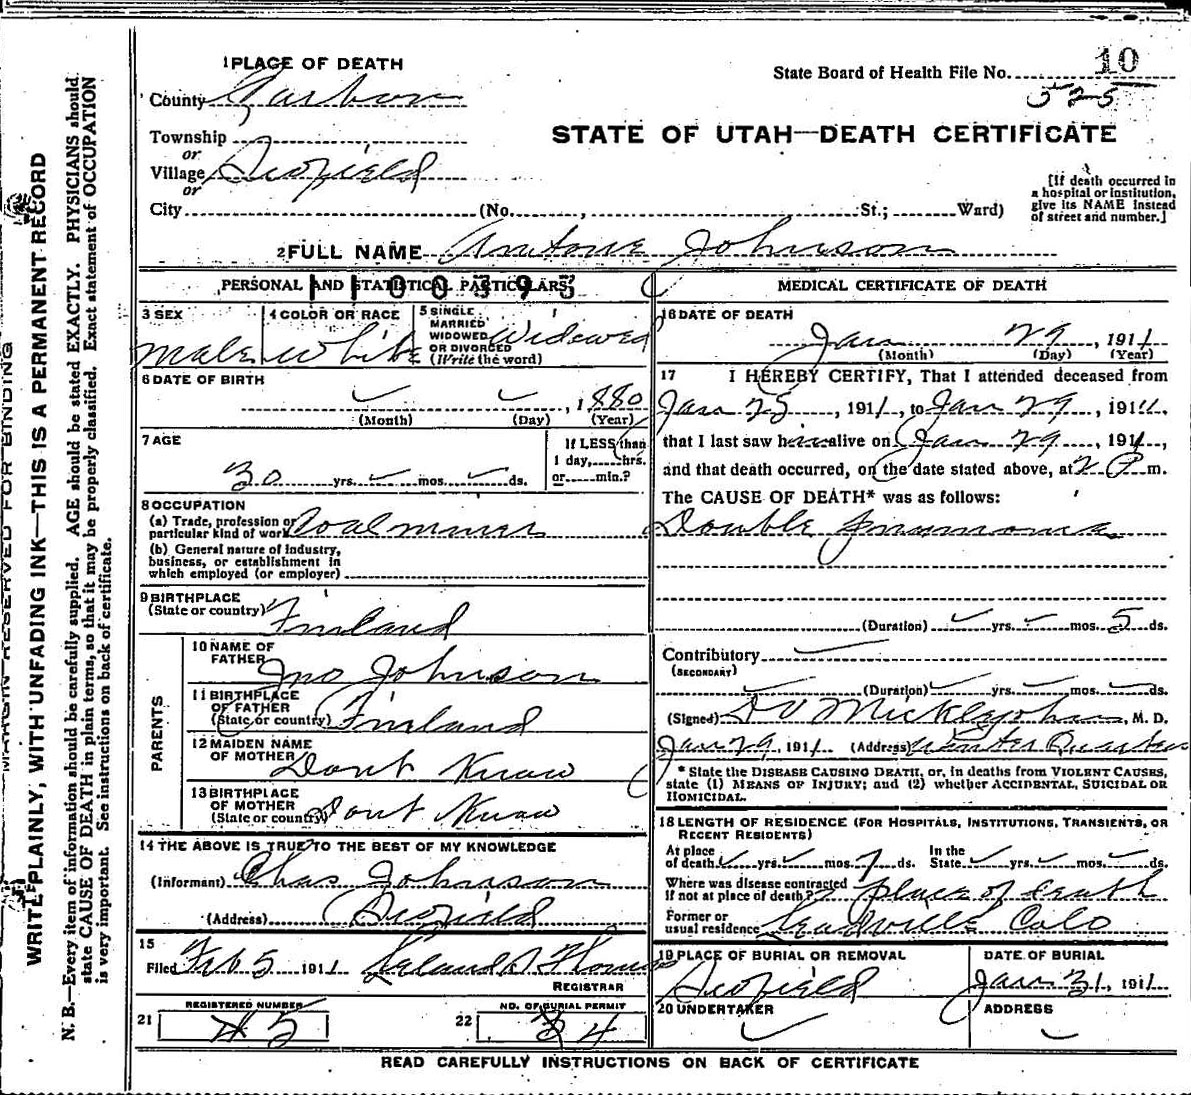 1 PLACE OF DEATH
State Board of Health File No. 10
County Carbon
525
STATE OF UTAH—DEATH CERTIFICATE
Township
or
Village Scofield
or
City (No. , St.; Ward)
[If death occurred in a hospital or institution, give its NAME instead of street and number.]
2 FULL NAME Antone Johnson
PERSONAL AND STATISTICAL PARTICULARS
1100393
3 SEX
Male
4 COLOR OR RACE
White
5 SINGLE MARRIED WIDOWED OR DIVORCED (Write the word)
Widowed
6 DATE OF BIRTH
, 1880
(Month) (Day) (Year)
7 AGE
30 yrs. mos. ds.
If LESS than 1 day, hrs. or min.?
8 OCCUPATION
(a) Trade, profession or particular kind of work Coal miner
(b) General nature of industry, business, or establishment in which employed (or employer)
9 BIRTHPLACE
(State or country) Finland
PARENTS
10 NAME OF FATHER Jno Johnson
11 BIRTHPLACE OF FATHER (State or country) Finland
12 MAIDEN NAME OF MOTHER Dont Know
13 BIRTHPLACE OF MOTHER (State or country) Dont Know
14 THE ABOVE IS TRUE TO THE BEST OF MY KNOWLEDGE
(Informant) Chas Johnson
(Address) Scofield
15
Filed Feb 5 1911
REGISTRAR
REGISTERED NUMBER
21 5
NO. OF BURIAL PERMIT
22 4
MEDICAL CERTIFICATE OF DEATH
16 DATE OF DEATH
Jan 29, 1911
(Month) (Day) (Year)
17 I HEREBY CERTIFY, That I attended deceased from
Jan 25, 1911, to Jan 29, 1911,
that I last saw him alive on Jan 29, 1911,
and that death occurred, on the date stated above, at 2 P m.
The CAUSE OF DEATH* was as follows:
Double pneumonia
(Duration) yrs. mos. 5 ds.
Contributory
(SECONDARY)
(Duration) yrs. mos. ds.
(Signed) Micklejohn, M. D.
Jan 29, 1911 (Address) Winter Quarters
* State the DISEASE CAUSING DEATH, or, in deaths from VIOLENT CAUSES, state (1) MEANS OF INJURY; and (2) whether ACCIDENTAL, SUICIDAL OR HOMICIDAL.
18 LENGTH OF RESIDENCE (FOR HOSPITALS, INSTITUTIONS, TRANSIENTS, OR RECENT RESIDENTS)
At place of death yrs. mos. 7 ds. In the State yrs. mos. ds.
Where was disease contracted if not at place of death? place of death
Former or usual residence Leadville Colo
19 PLACE OF BURIAL OR REMOVAL
Scofield
DATE OF BURIAL
Jan 31, 1911
20 UNDERTAKER
ADDRESS
READ CAREFULLY INSTRUCTIONS ON BACK OF CERTIFICATE
MARGIN RESERVED FOR BINDING
WRITE PLAINLY, WITH UNFADING INK—THIS IS A PERMANENT RECORD
N. B.—Every item of information should be carefully supplied. AGE should be stated EXACTLY. PHYSICIANS should
state CAUSE OF DEATH in plain terms, so that it may be properly classified. Exact statement of OCCUPATION
is very important. See instructions on back of certificate.